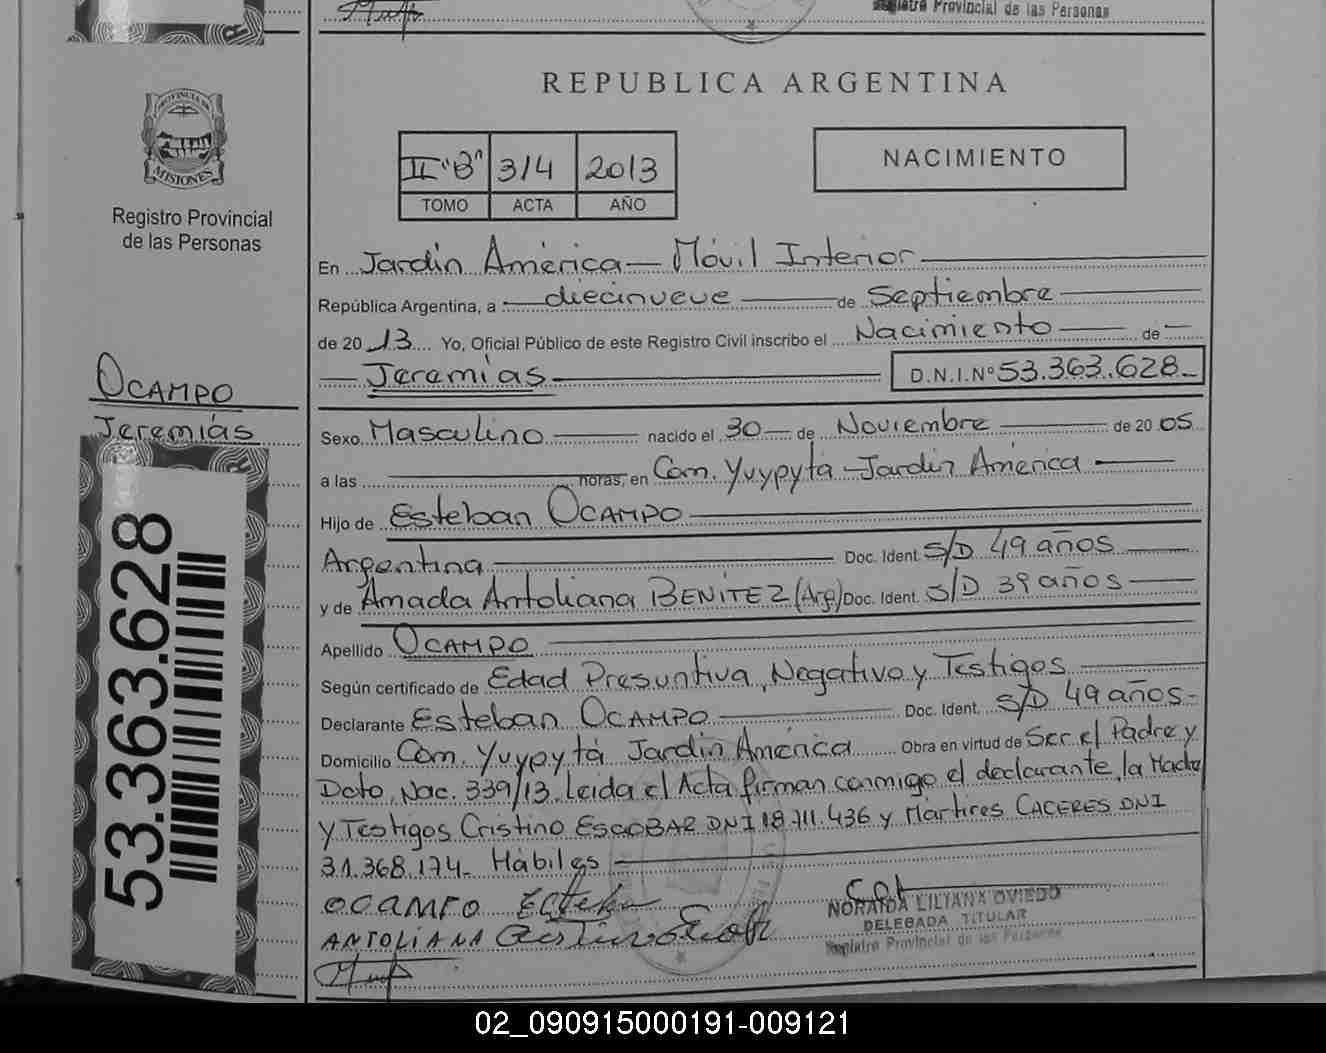 Registro Provincial de las Personas
REPUBLICA ARGENTINA
II "B" 314 2013
TOMO ACTA AÑO
NACIMIENTO
MISIONES
Registro Provincial
de las Personas
En Jardín América — Móvil Interior
República Argentina, a diecinueve de Septiembre
de 20 13 Yo, Oficial Público de este Registro Civil inscribo el Nacimiento de
Jeremías D.N.I.Nº 53.363.628
OCAMPO
Jeremías
53.363.628
Sexo Masculino nacido el 30 de Noviembre de 20 05
a las horas, en Com. Yvypytá - Jardín América
Hijo de Esteban OCAMPO
Argentina Doc. Ident. S/D 49 años
y de Amada Antoliana BENITEZ (Arg) Doc. Ident. S/D 39 años
Apellido OCAMPO
Según certificado de Edad Presuntiva, Negativo y Testigos
Declarante Esteban OCAMPO Doc. Ident. S/D 49 años
Domicilio Com. Yvypytá Jardín América Obra en virtud de Ser el Padre y
Dcto. Nac. 339/13. Leída el Acta firman conmigo el declarante, la Madre
y Testigos Cristino ESCOBAR DNI 18.711.436 y Mártires CACERES DNI
31.368.174. Hábiles
OCAMPO Esteban
ANTOLIANA
NORAIDA LILIANA OVIEDO
DELEGADA TITULAR
Registro Provincial de las Personas
02_090915000191-009121